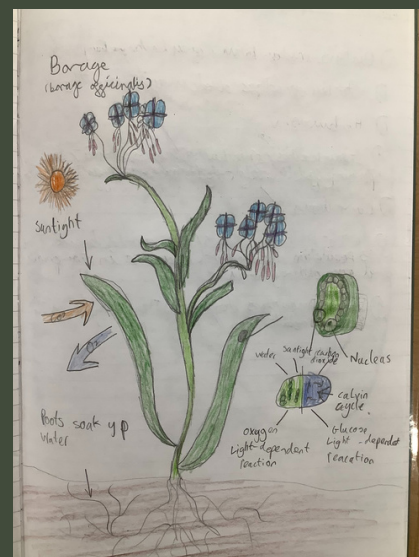 Borage
(borage officinalis)
Sunlight
Roots soak up
Water
Nucleus
water
sunlight
carbon
dioxide
calvin
cycle.
oxygen
Light-dependent
reaction
Glucose
Light-dependent
reaction